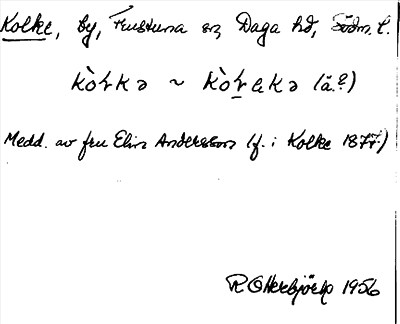 Kolke, by, Frustuna sn, Daga hd, Södm. l.
kòɬkə ~ kòɬəkə (ä?)
Medd. av fru Elin Andersson (f. i Kolke 1877)
1956